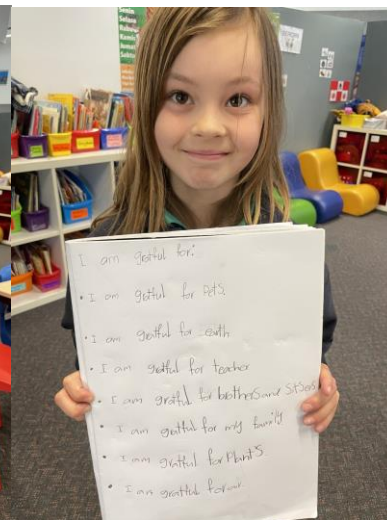 I am gratful for:
• I am gratful for Pets.
• I am gratful for earth
• I am gratful for teacher
• I am gratful for brothers and SitSers
• I am gratful for my family
• I am gratful for Plants
• I am gratful for air